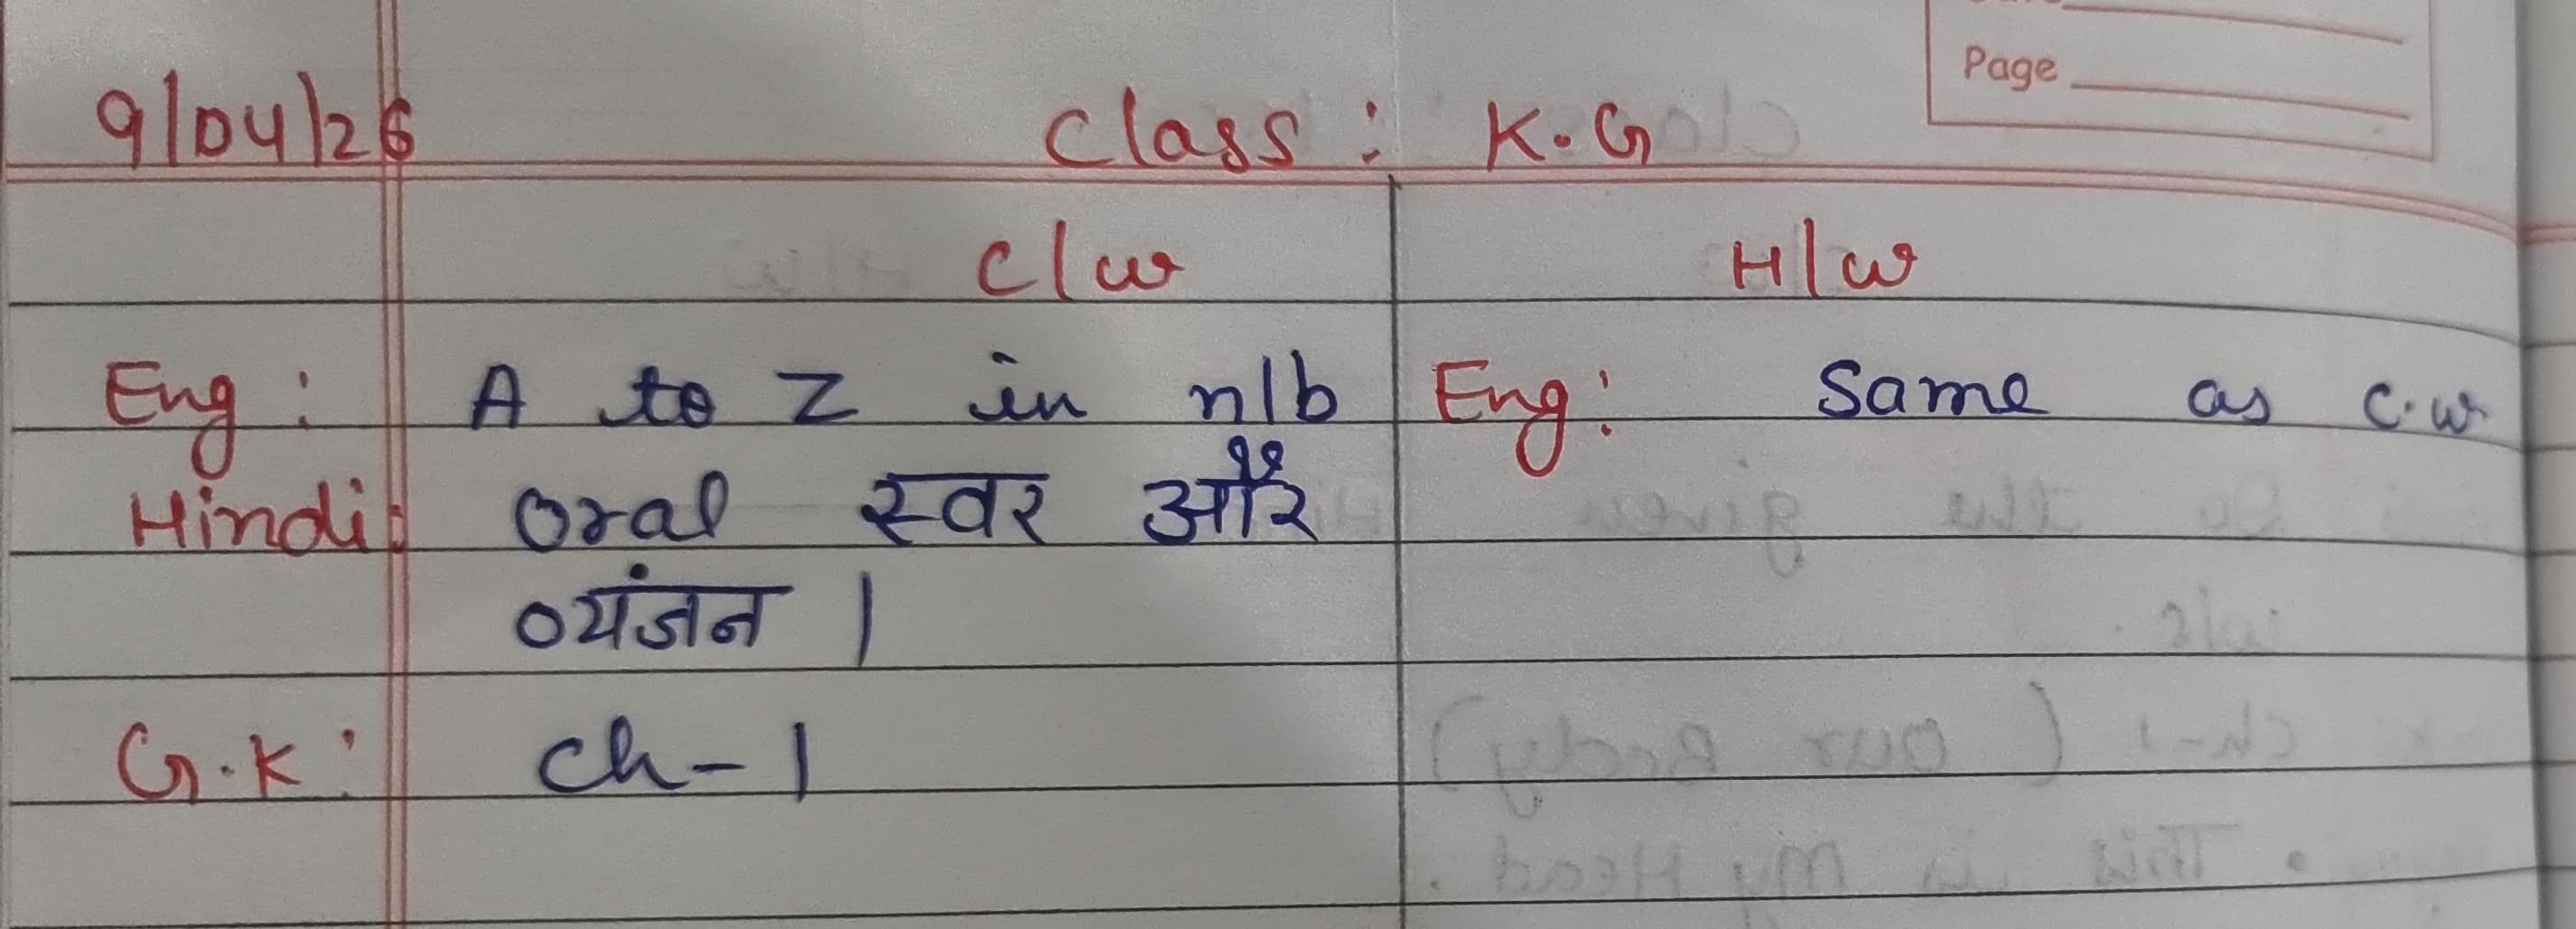 Page
9/04/26 Class : K.G
C/w H/w
Eng : A to Z in n/b Eng : Same as c.w
Hindi : Oral स्वर और
व्यंजन ।
G.K : Ch-1